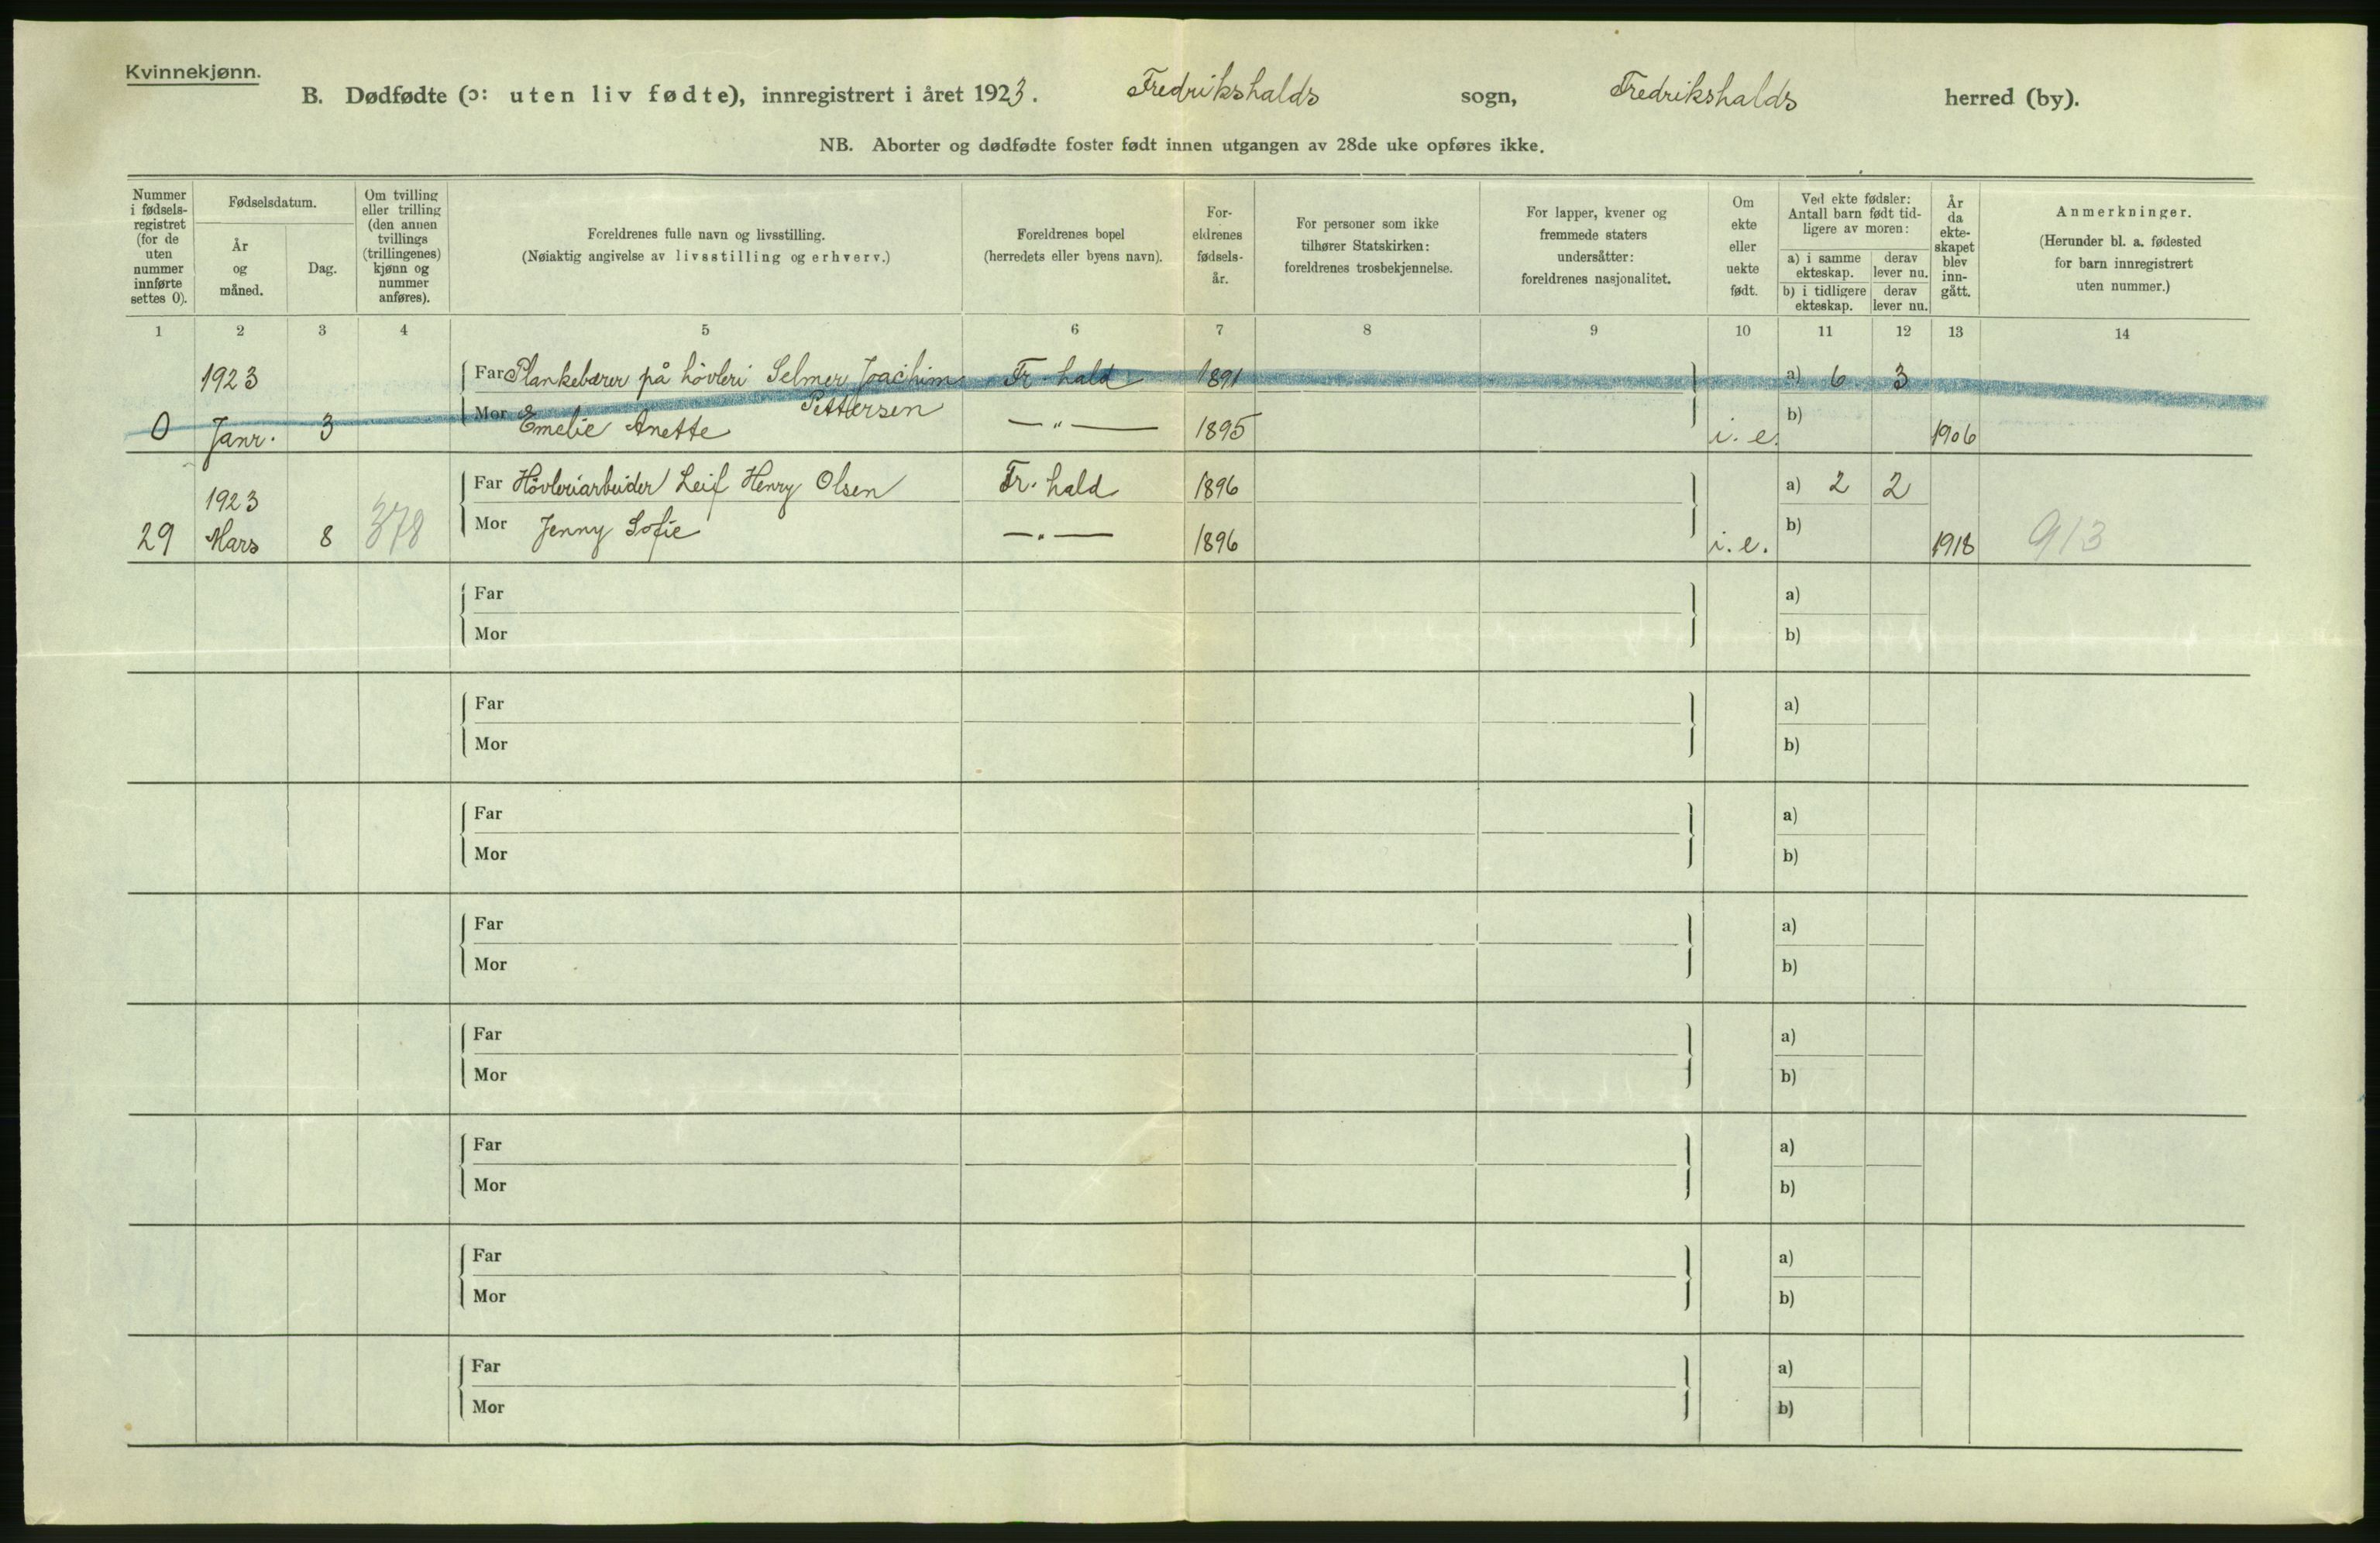 Kvinnekjønn.
B. Dødfødte (ɔ: uten liv fødte), innregistrert i året 1923. Fredrikshalds sogn, Fredrikshalds herred (by).
NB. Aborter og dødfødte foster født innen utgangen av 28de uke opføres ikke.
Nummer i fødsels-registret (for de uten nummer innførte settes 0).
Fødselsdatum.
År og måned.
Dag.
Om tvilling eller trilling (den annen tvillings (trillingenes) kjønn og nummer anføres).
Foreldrenes fulle navn og livsstilling.
(Nøiaktig angivelse av livsstilling og erhverv.)
Foreldrenes bopel
(herredets eller byens navn).
For-eldrenes fødsels-år.
For personer som ikke tilhører Statskirken: foreldrenes trosbekjennelse.
For lapper, kvener og fremmede staters undersåtter: foreldrenes nasjonalitet.
Om ekte eller uekte født.
Ved ekte fødsler: Antall barn født tid-ligere av moren:
a) i samme ekteskap. derav lever nu.
b) i tidligere ekteskap. derav lever nu.
År da ekte-skapet blev inn-gått.
Anmerkninger.
(Herunder bl. a. fødested for barn innregistrert uten nummer.)
1 2 3 4 5 6 7 8 9 10 11 12 13 14
1923 Far Plankebærer på hövleri Selmer Joachim Fr. hald 1891 a) 6 3
Pettersen
0 Janr. 3 Mor Emelie Anette —"— 1895 i. e. b) 1906
1923 Far Hövleriarbeider Leif Henry Olsen Fr. hald 1896 a) 2 2
29 Mars 8 378 Mor Jenny Sofie —"— 1896 i. e. b) 1918 913
Far a)
Mor b)
Far a)
Mor b)
Far a)
Mor b)
Far a)
Mor b)
Far a)
Mor b)
Far a)
Mor b)
Far a)
Mor b)
Far a)
Mor b)